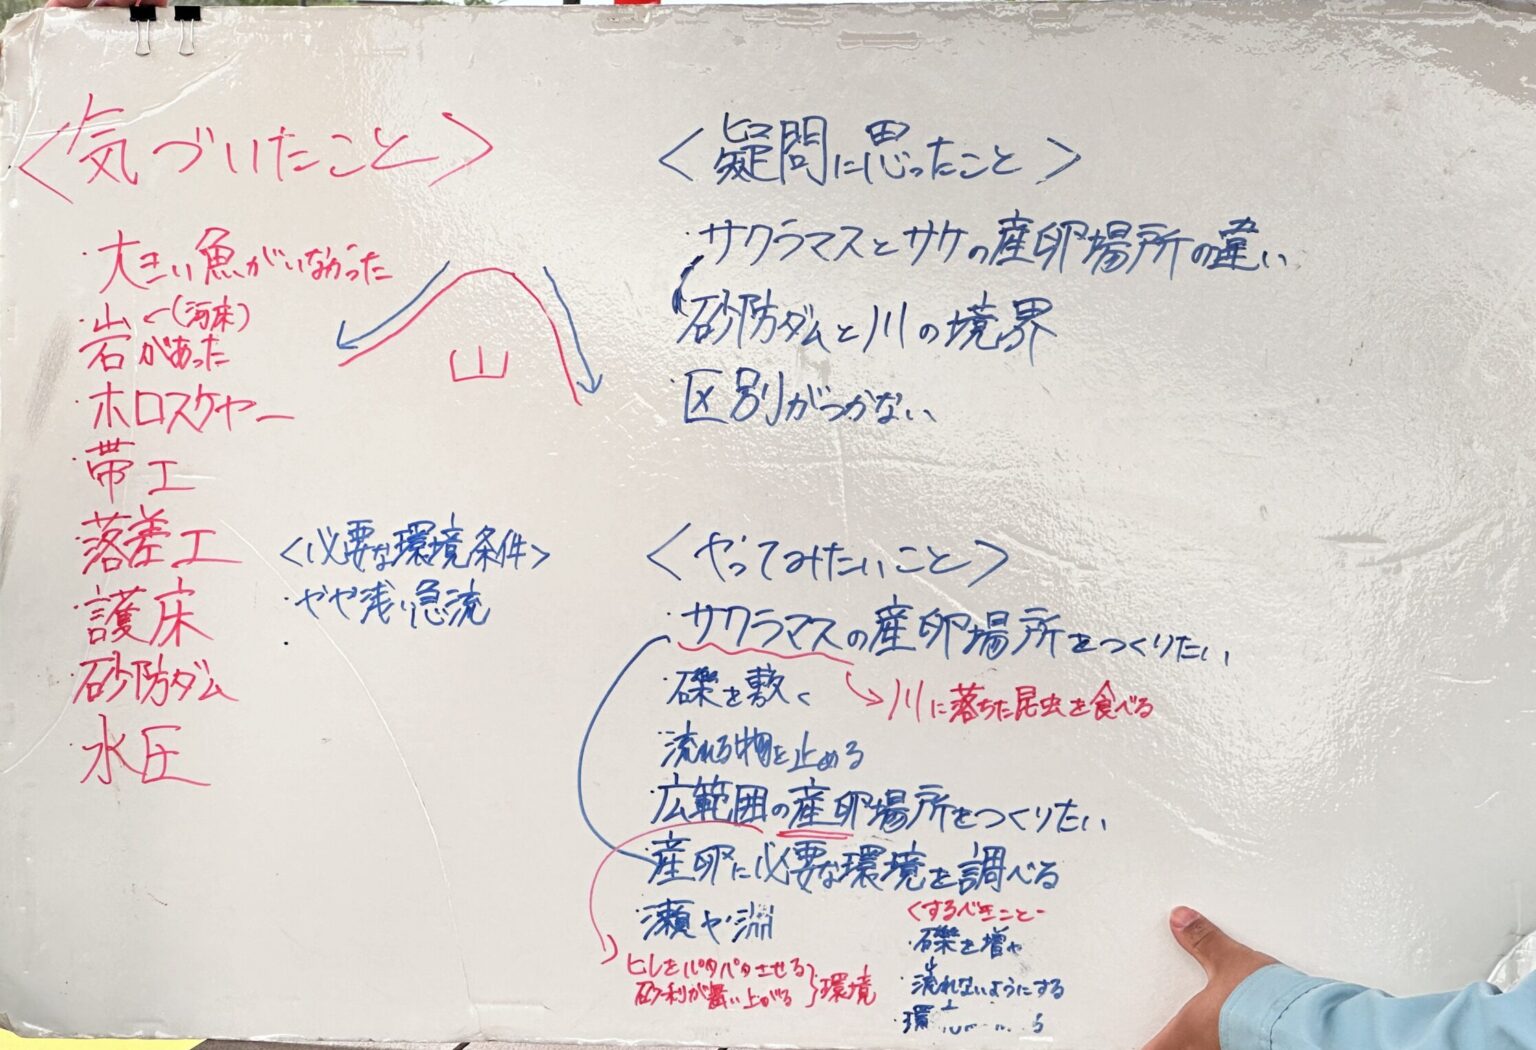 <気づいたこと>
・大きい魚がいなかった
・岩があった
山←(河床)
・ホロスケヤー
・帯工
・落差工
・護床
・砂防ダム
・水圧
山
<必要な環境条件>
・やや浅い急流
・
<疑問に思ったこと>
・サクラマスとサケの産卵場所の違い
・砂防ダムと川の境界
・区別がつかない
<やってみたいこと>
・サクラマスの産卵場所をつくりたい
→川に落ちた昆虫を食べる
・礫を敷く
・流れる物を止める
・広範囲の産卵場所をつくりたい
・産卵に必要な環境を調べる
・瀬や淵
ヒレをパタパタさせる
砂利が舞い上がる
}環境
<するべきこと
・礫を増や
・流れないようにする
・環